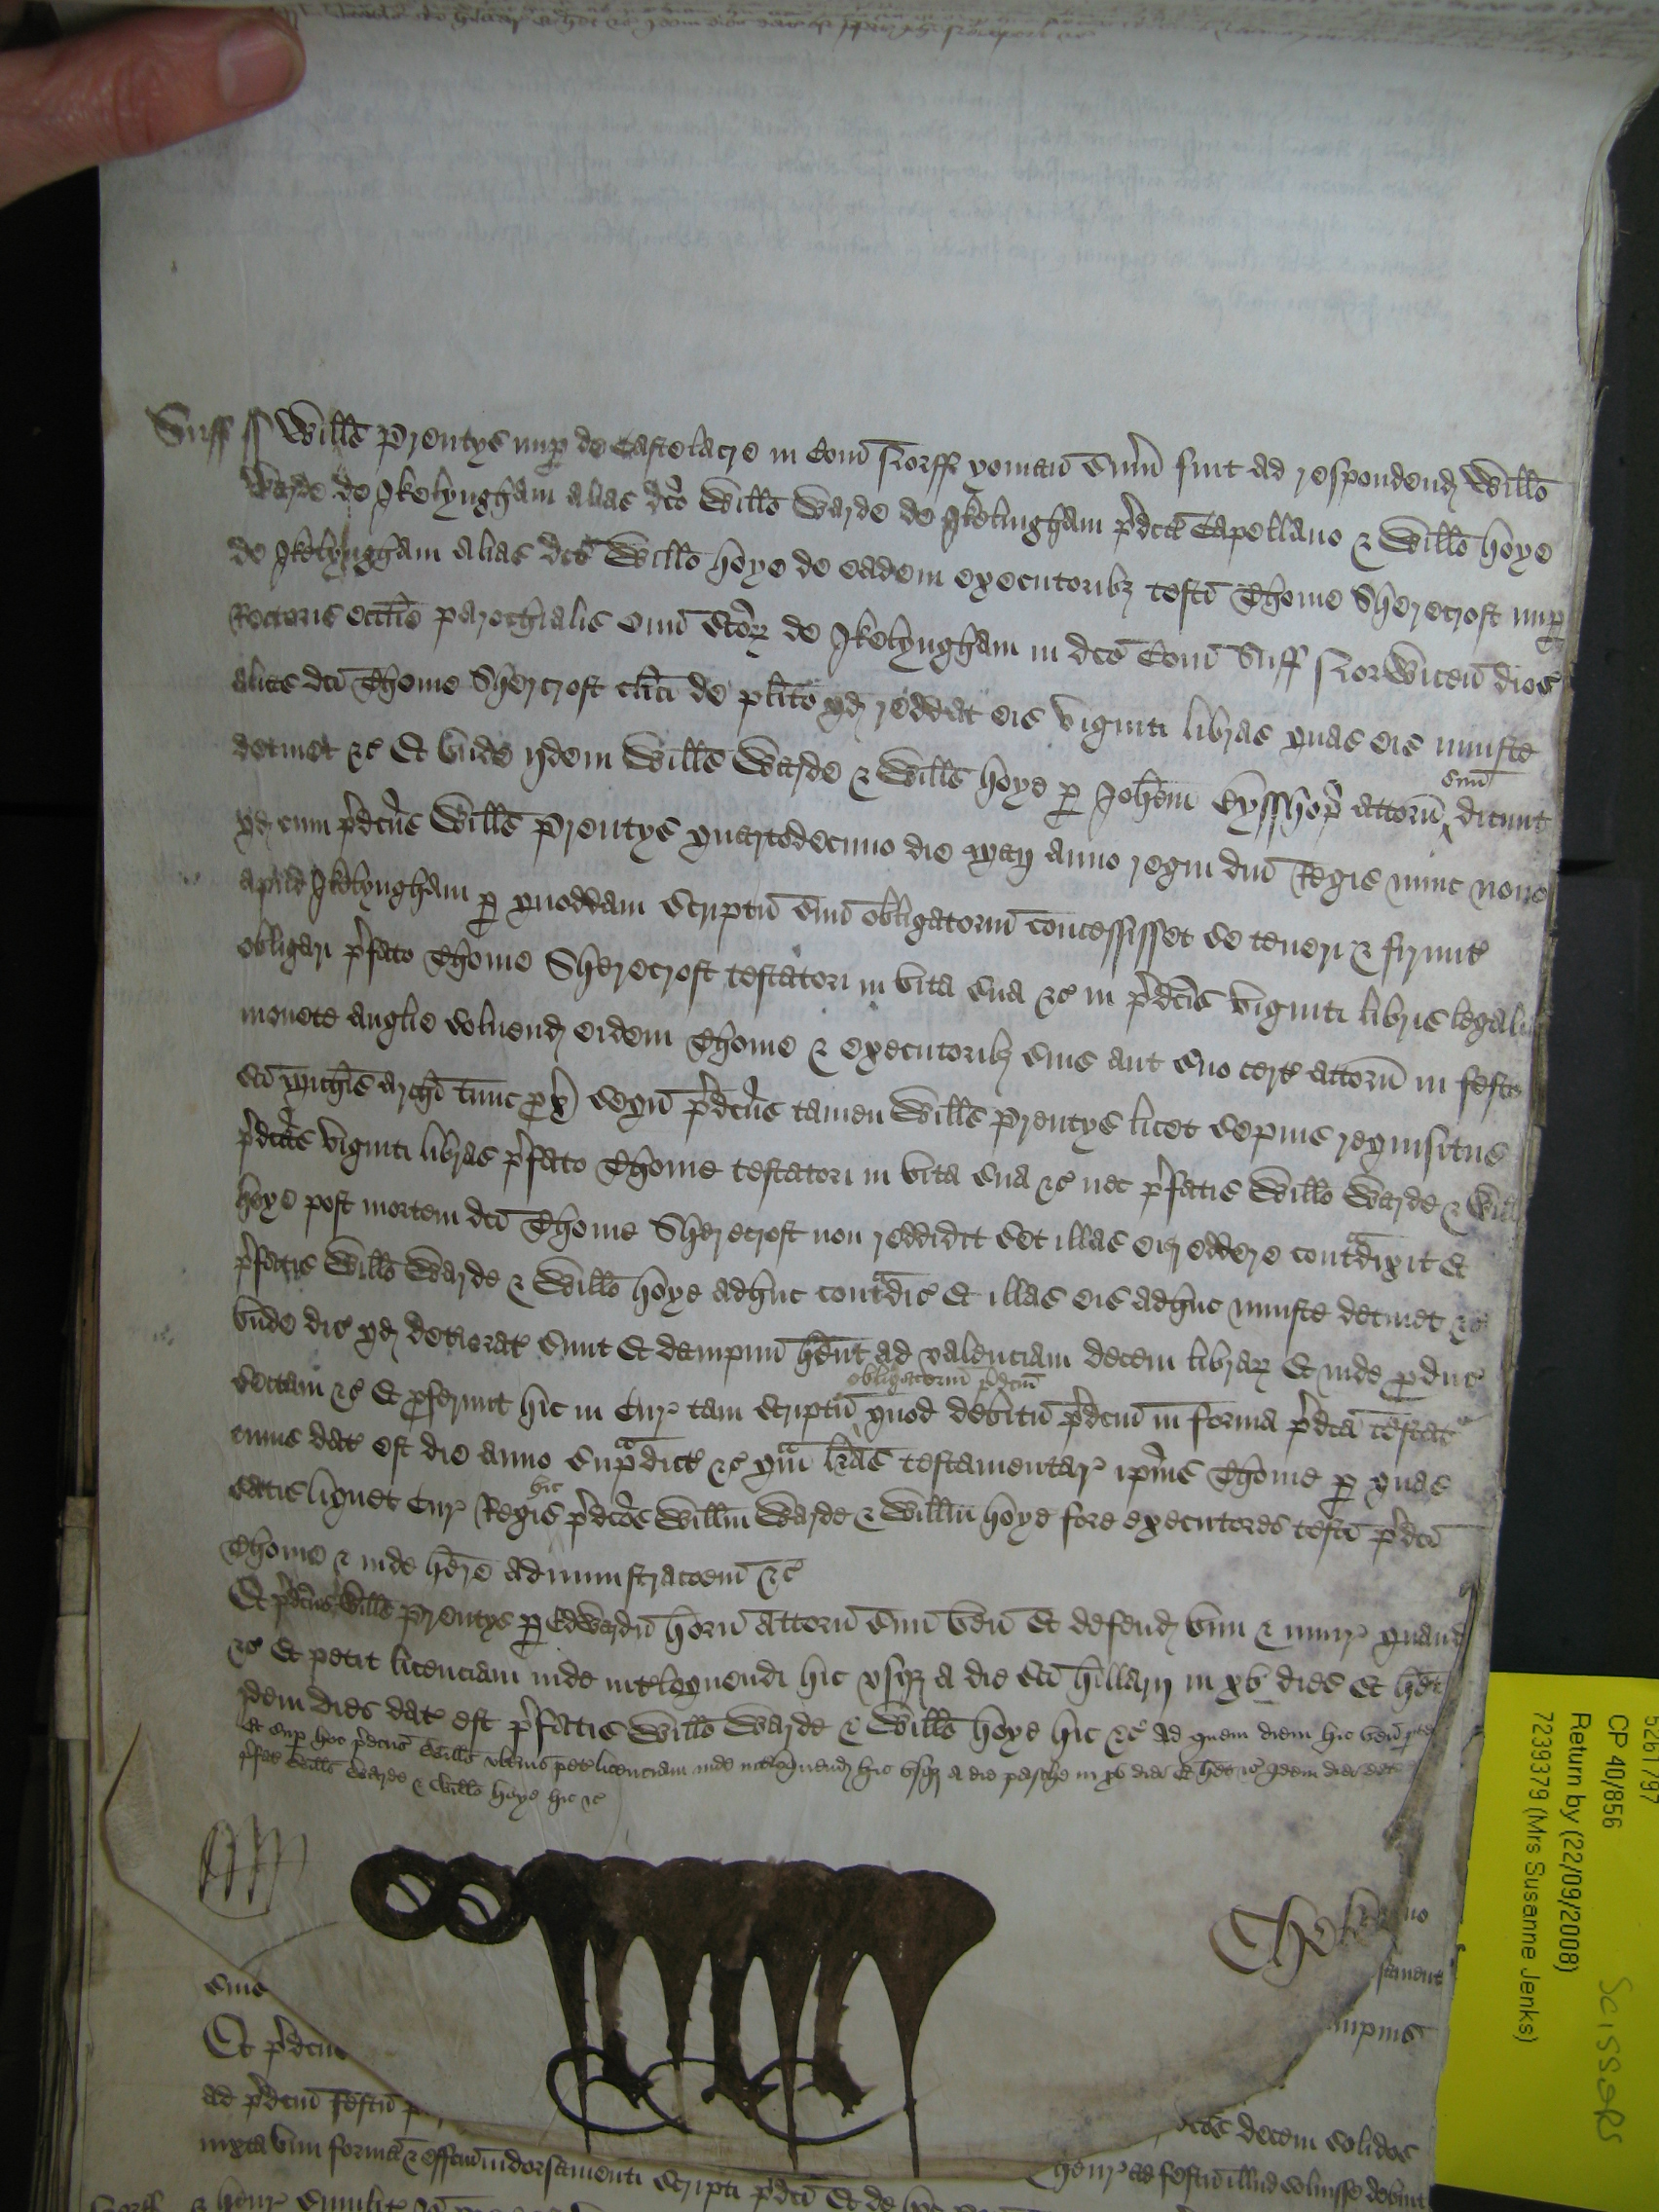 Suff ss Will̄s Prentys nup de Castelacre in Com̄ Norff yoman̄ sum̄ fuit ad respondend Will̄o
Warde de Ikelyngham alias dc̄o Will̄o Warde de Ikelingham p̄dc̄a Capellano & Will̄o hoye
de Ikelyngham alias dc̄o Will̄o hoye de eadem executorib3 testī Thome Sherecroft nup
Rectoris eccl̄ie parochialis om̄i Sc̄or de Ikelyngham in dc̄o Com̄ Suff Norwicen̄ dioc̄
alias dc̄i Thome Shercroft cl̄ici de pl̄ito qd reddat eis viginti libras quas eis iniuste
detinet &c Et unde ijdem Will̄s Warde & Will̄s hoye p Joh̄em Byssshop attorn̄ suū dicunt
qd cum p̄dc̄us Will̄s Prentys quartodecimo die Maij anno regni dn̄i Regis nunc nono
apud Ikelyngham p quoddam scriptū suū obligatoriū concessisset se teneri & firmit̄
obligari p̄fato Thome Sherecroft testatori in vita sua &c in p̄dc̄is viginti libris legalis
monete anglie solvend eidem Thome & executorib3 suis aut suo certo attorn̄ in festo
sc̄i Mich̄is arch̄i tunc px̄ seqū p̄dc̄us tamen Will̄s Prentys licet sepius requisitus
p̄dc̄as viginti libras p̄fato Thome testatori in vita sua &c nec p̄fatis Will̄o Warde & Will̄o
hoye post mortem dc̄i Thome Sherecroft non reddidit set illas ei reddere cont̄dixit Et
p̄fatis Will̄o Warde & Will̄o hoye adhuc cont̄dic̄ Et illas eis adhuc iniuste detinet &c
unde dic̄ qd deteriorat̄ sunt Et dampnū h̄ent ad valenciam decem librar Et inde produc̄
sectam &c Et proferunt hic in Cur̄ tam scriptū obligatoriū p̄dc̄m quod debitū p̄dc̄m in forma p̄dc̄a testat̄
cuius dat̄ est die anno sup̄dict̄ &c qm̄ l̄ras testamentar̄ ip̄ius Thome p quas
satis liquet Cur̄ Regis hic p̄dc̄os Will̄m Warde & Will̄m hoye fore executores testī p̄dc̄i
Thome & inde h̄ere administrac̄oem &c
Et p̄dc̄us Will̄s Prentys p Edwardū horn̄ attorn̄ suū ven̄ Et defend vim & iniur̄ quand
&c Et petit licenciam inde int̄loquendi hic usq3 a die sc̄i hillarij in xv dies Et h̄et
idem dies dat̄ est p̄fatis Will̄o Warde & Will̄o hoye hic &c Ad quem diem hic ven̄ ptes
Et sup hoc p̄dc̄us Will̄s ulterius pet̄ licenciam inde int̄loquend hic usq3 a die pasche in xv dies Et h̄et &c Idem dies dat̄
p̄fat̄ Will̄o Warde & Will̄o hoye hic &c
suis
Et p̄dc̄us
ad p̄dc̄m festū
decem solidos
iuxta vim formā & effectū indorsamenti scripti p̄dc̄i Et de hoc
henr̄ ad festū illud solvisse debuit
5261797
CP 40/856
Return by (22/09/2008)
7239379 (Mrs Susanne Jenks)
SCISSORS